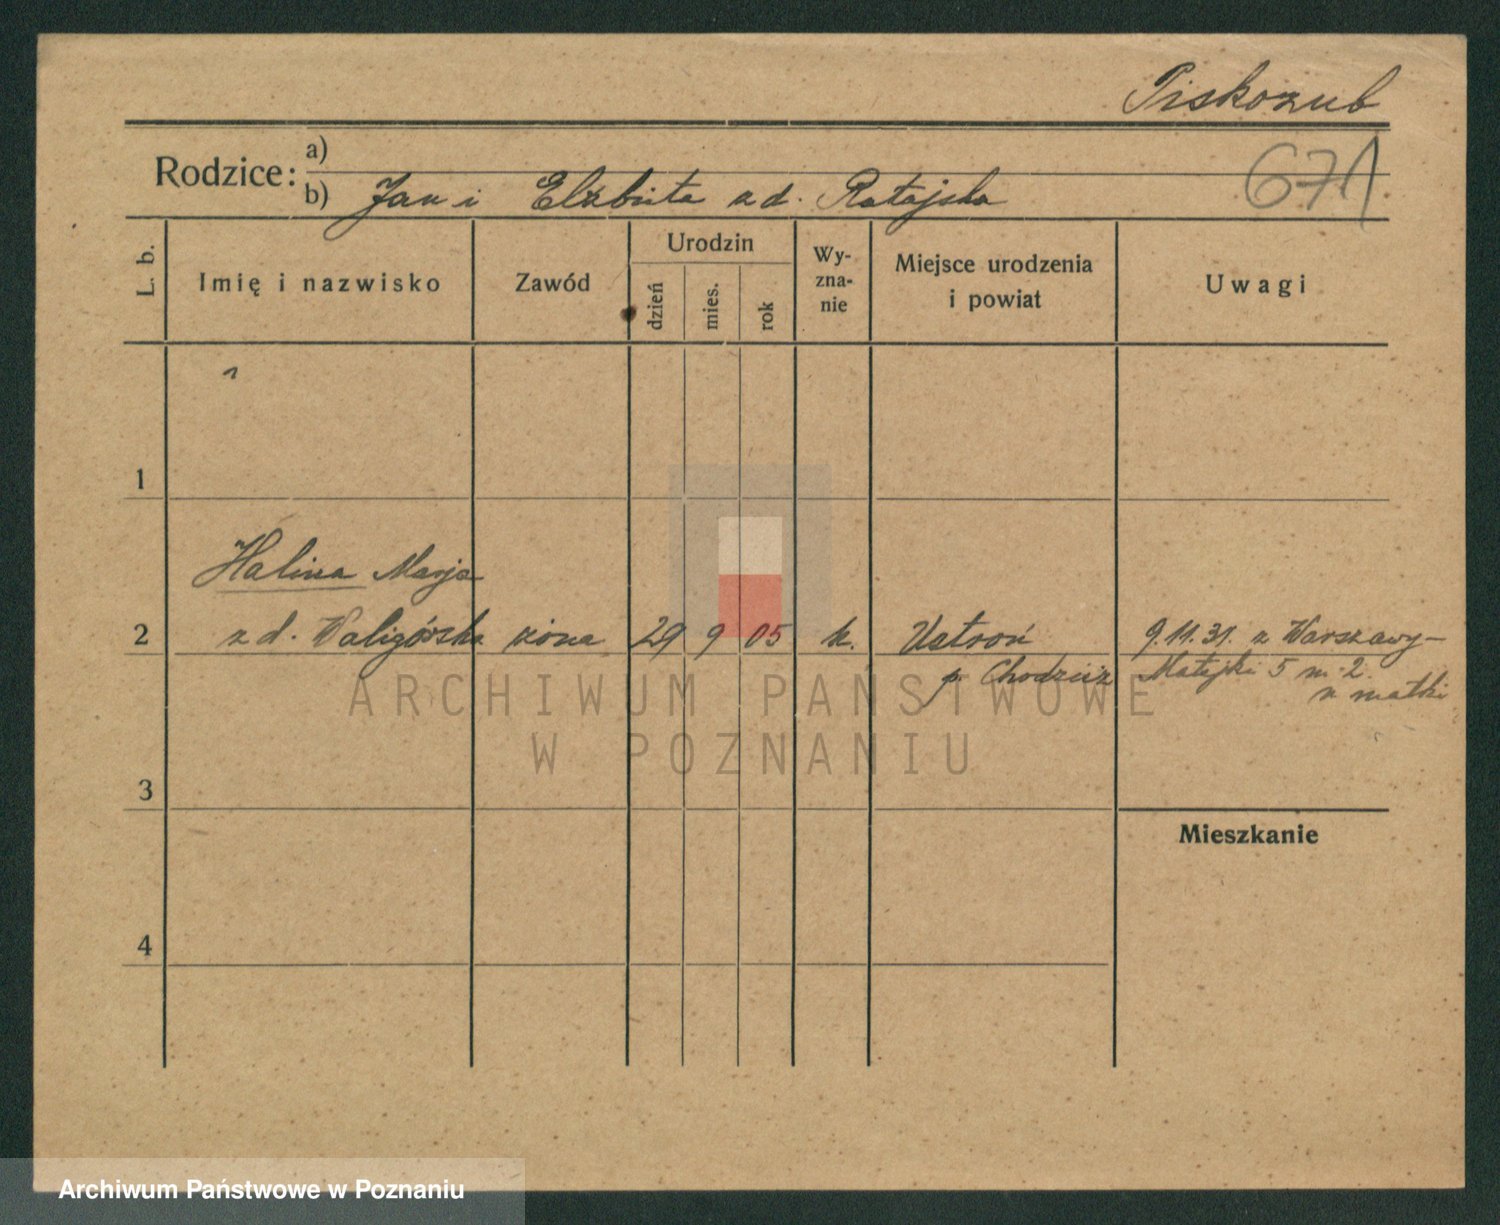 Piskozub
Rodzice: a)
671
b) Jan i Elżbieta z d. Ratajska
L. b.
Imię i nazwisko
Zawód
Urodzin
dzień
mies.
rok
Wy-
zna-
nie
Miejsce urodzenia
i powiat
Uwagi
1
Halina Marja
2 z d. Waligórska żona 29 9 05 k. Ustroń 9.11.31. z Warszawy-
p. Chodzież Matejki 5 m. 2.
u matki
ARCHIWUM PAŃSTWOWE
W POZNANIU
3
Mieszkanie
4
Archiwum Państwowe w Poznaniu